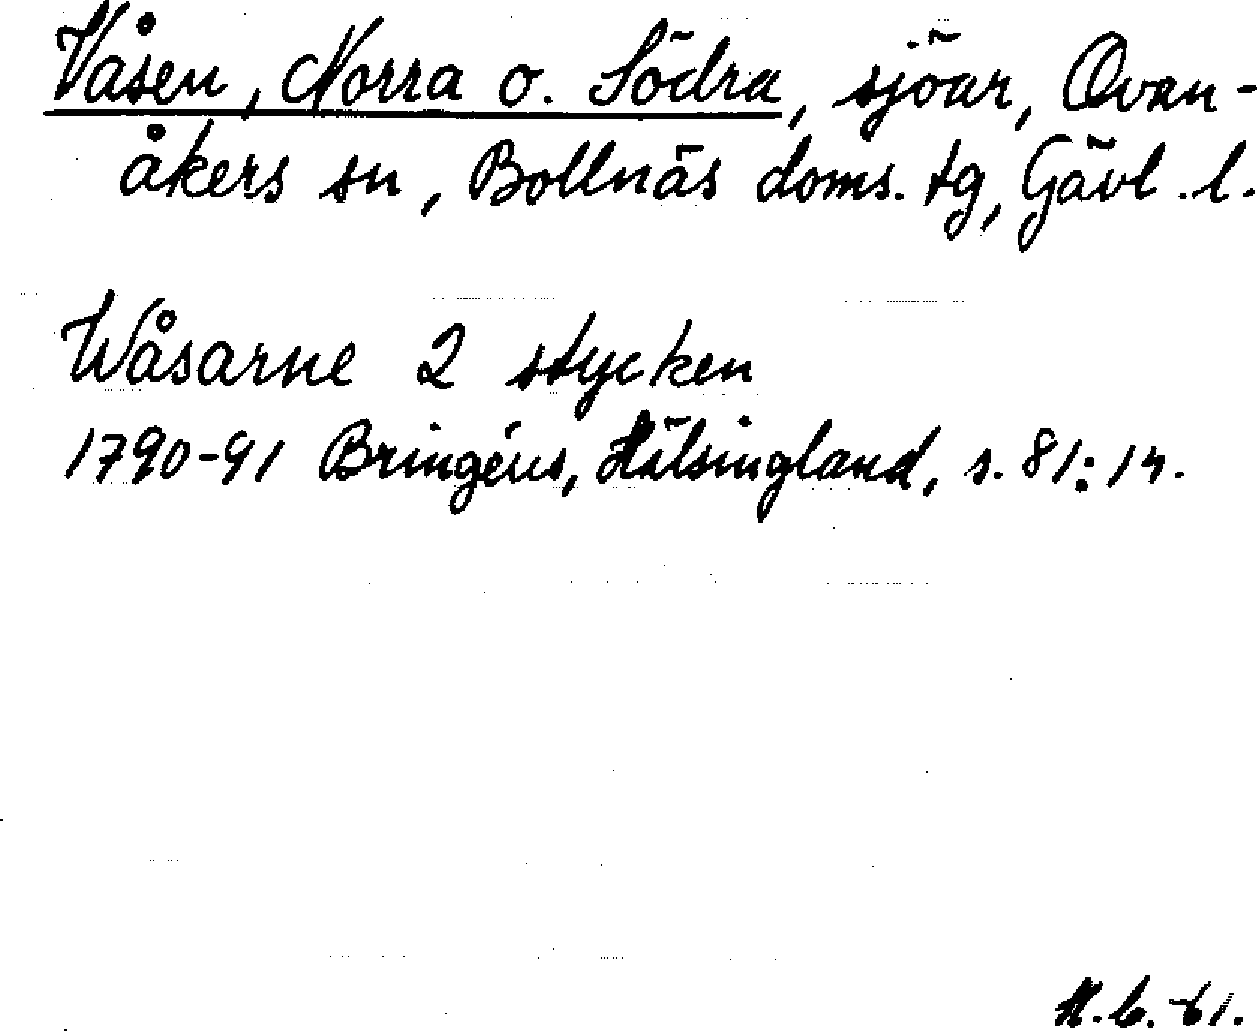 Våsen, Norra o. Södra, sjöar, Ovan-
åkers sn, Bollnäs doms. tg, Gävl. l.
Wåsarne 2 stycken
1790-91 Bringéus, Hälsingland, s. 81: 14.
-61.